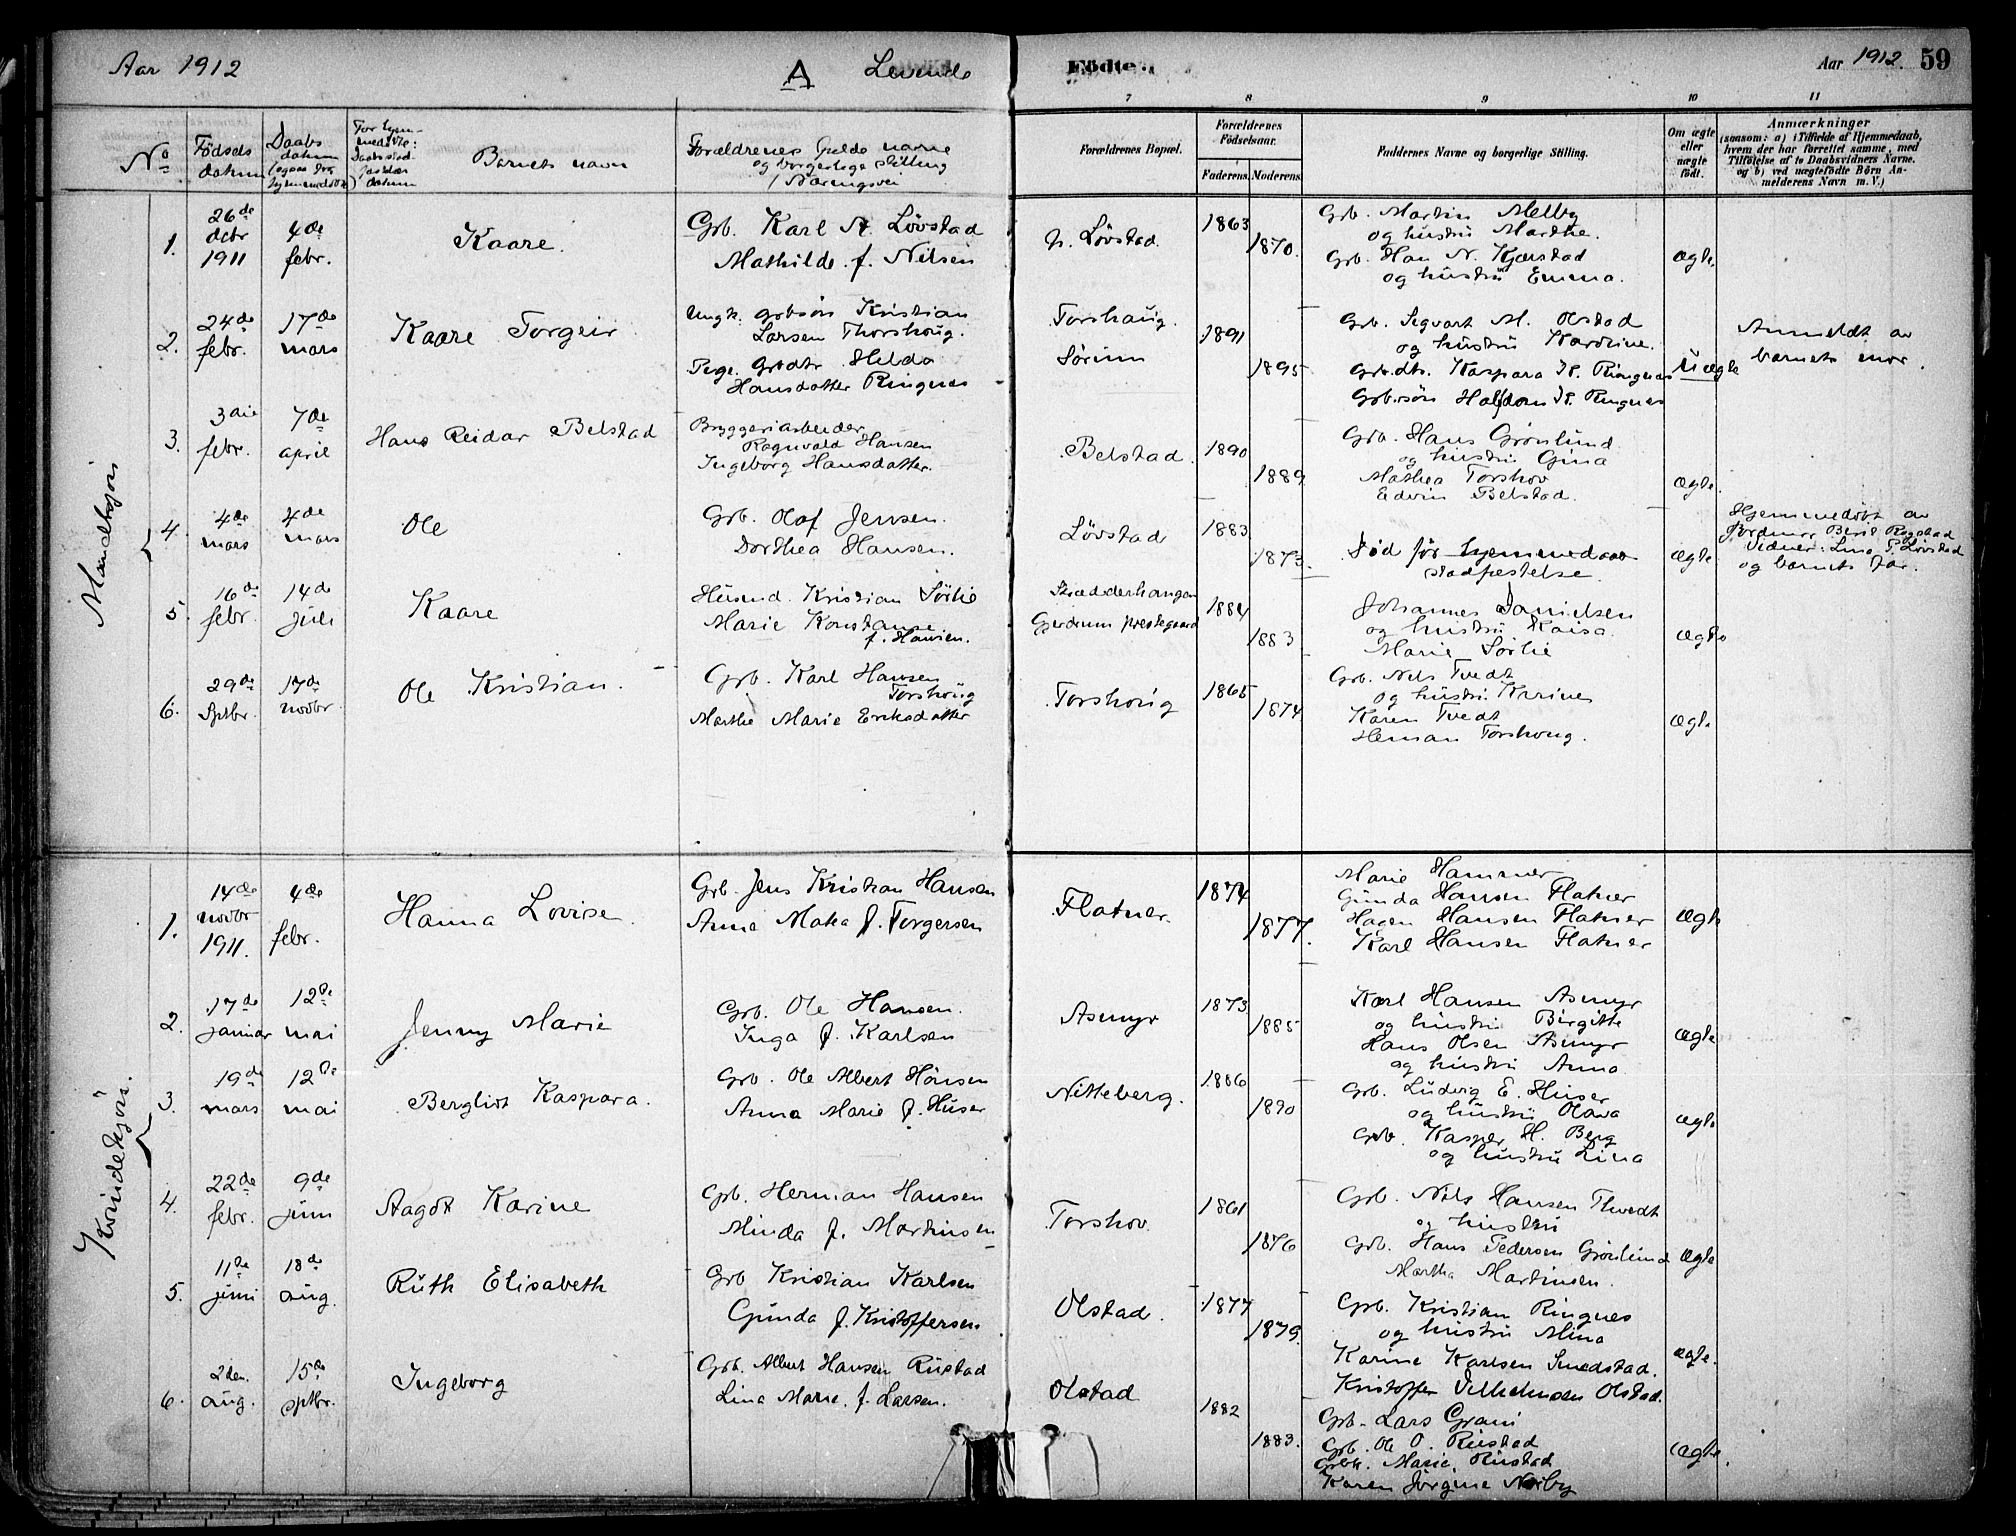 Aar 1912
A Levende
Fødte.
Aar 1912. 59
7 8 9 10 11
No
Fødsels datum
Daabs datum
Barnets navn
Forældrenes fulde navne
og borgerlige stilling
/ Næringsvei
Forældrenes Bopæl.
Forældrenes Fødselsaar.
Faderens. Moderens.
Faddernes Navne og borgerlige Stilling.
Om ægte eller uægte født.
Anmærkninger
(saasom: a) i Tilfælde af Hjemmedaab,
hvem der har forrettet samme, med
Tilføielse af to Daabsvidners Navne.
og b) ved uægtefødte Børn An-
melderens Navn m. V.)
Mandkjøn
1. 26de octbr 1911
4de febr.
Kaare.
Grb. Karl A. Løvstad
Mathilde f. Nilsen
n. Løvstad.
1863
1870.
Grb. Martin Melby
og hustru Marthe.
Grb. Han N. Kjærstad
og hustru Emma.
ægte.
2. 24de febr.
17de mars
Kaare Torgeir
Ungk. grbsøn Kristian
Larsen Thorshoug.
Pige. Grbdtr. Hilda
Hansdatter Ringnes
Torshaug.
Sørum
1891
1895
Grb. Segvart M. Olstad
og hustru Karoline.
Grb.dtr. Kaspara K. Ringnes
Grb.søn Halfdan K. Ringnes
Uægte
Anmeldt av
barnets mor.
3. 3die febr.
7de april
Hans Reidar Belstad
Bryggeriarbeider
Ragnvald Hansen
Ingeborg Hansdatter.
Belstad.
1890
1889
Grb. Hans Grønlund
og hustru Gina
Mathea Torshov
Edvin Belstad.
ægte.
4. 4de mars
4de mars
Ole
Grb. Olaf Jensen.
Dorthea Hansen.
Løvstad
1883
1873.
Død før hjemmedaab
stadfæstelse.
ægte
Hjemmedøbt av
Jordmor Berit Rogstad
Vidner: Lina P. Løvstad
og barnets far.
5. 16de febr.
14de juli
Kaare
Husmd. Kristian Sørlie
Marie Konstanse
f. Hansen.
Gjerdrum prestegaard
1884
1883
Johannes Danielsen
og hustru Kaisa.
Marie Sørlie
ægte
6. 29de Sptbr.
17de novbr.
Ole Kristian.
Grb. Karl Hansen
Torshoug
Marthe Marie Eriksdatter
Torshoug
1865
1874
Grb. Nels Tvedt
og hustru Karine
Karen Tvedt
Herman Torshoug.
ægte
Kvindekjøn.
1. 14de novbr 1911.
4de febr.
Hanna Lovise.
Grb. Jens Kristian Hansen
Anna Maka f. Torgersen
Flatner.
1874
1877.
Marie Hammer
Gunda Hansen Flatner
Hagen Hansen Flatner
Karl Hansen Flatner
ægte
2. 17de januar
12te mai
Jenny Marie
Grb. Ole Hansen.
Inga f. Karlsen
Asmyr
1873
1885
Karl Hansen Asmyr
og hustru Birgitte
Hans Olsen Asmyr
og hustru Anna
ægte
3. 19de mars
12te mai
Bergliot Kaspara.
Grb. Ole Albert Hansen
Anna Marie f. Huser
Nitteberg.
1886
1890
Grb. Ludvig E. Huser
og hustru Olava
Grb. Kasper H. Berg
og hustru Lina
ægte
4. 22de febr.
9de juni
Aagot Karine
Grb. Herman Hansen
Minda f. Martinsen
Torshov
1861
1876
Grb. Nils Hansen Thvedt
og hustru
Grb. Hans Pedersen Grønlund
Martha Martinsen.
ægte
5. 11te juni
18de aug.
Ruth Elisabeth
Grb Kristian Karlsen
Gunda f. Kristoffersen
Olstad.
1877
1879.
Grb. Kristian Ringnes
og hustru Alina
Karine Karlsen Smedstad.
Kristoffer Vilhelmsen Olstad.
ægte.
6. 2den. aug.
15de sptbr.
Ingeborg
Grb. Albert Hansen Rustad
Lina Marie. f. Larsen.
Olstad
1882
1883.
Grb. Lars Grani
Grb. Ole O. Rustad
Marie Rustad
Karen Jørgine Norby
ægte.